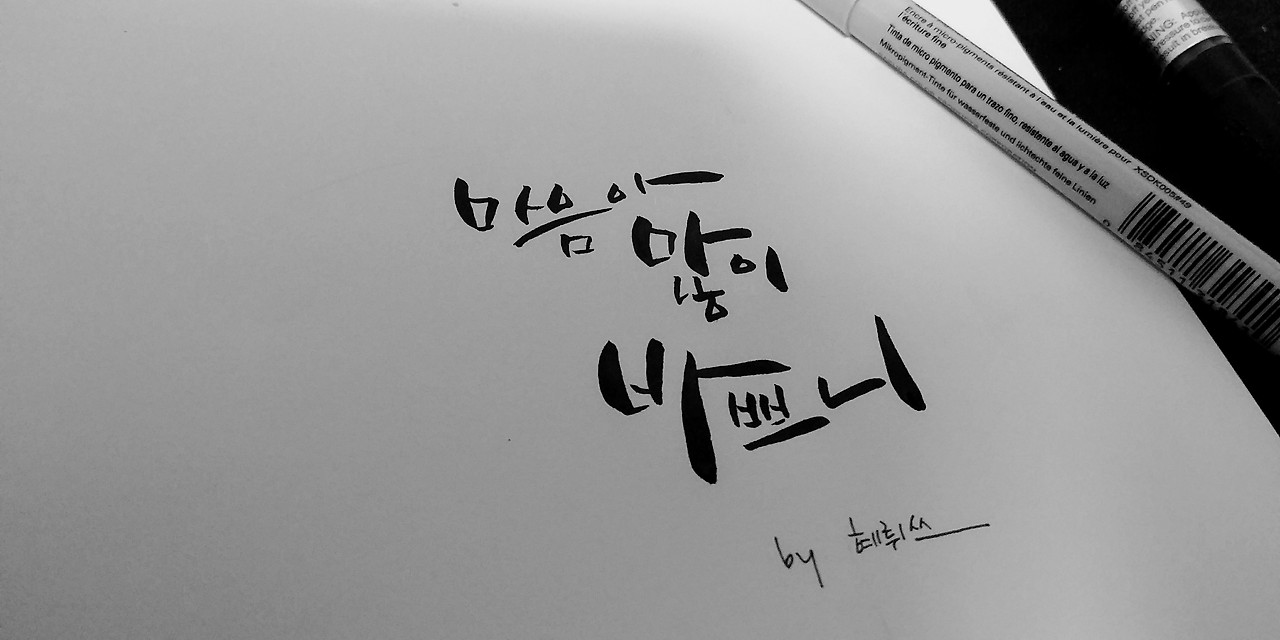 마음아
많이
바쁘니
by 헤뤼쓰
Encre à micro-pigments résistant à l'eau et la lumière pour
l'écriture fine
Tinta de micro pigmento para un trazo fino, resistente al agua y a la luz
Mikropigment-Tinte für wasserfeste und lichtechte feine Linien
XSDK005#49